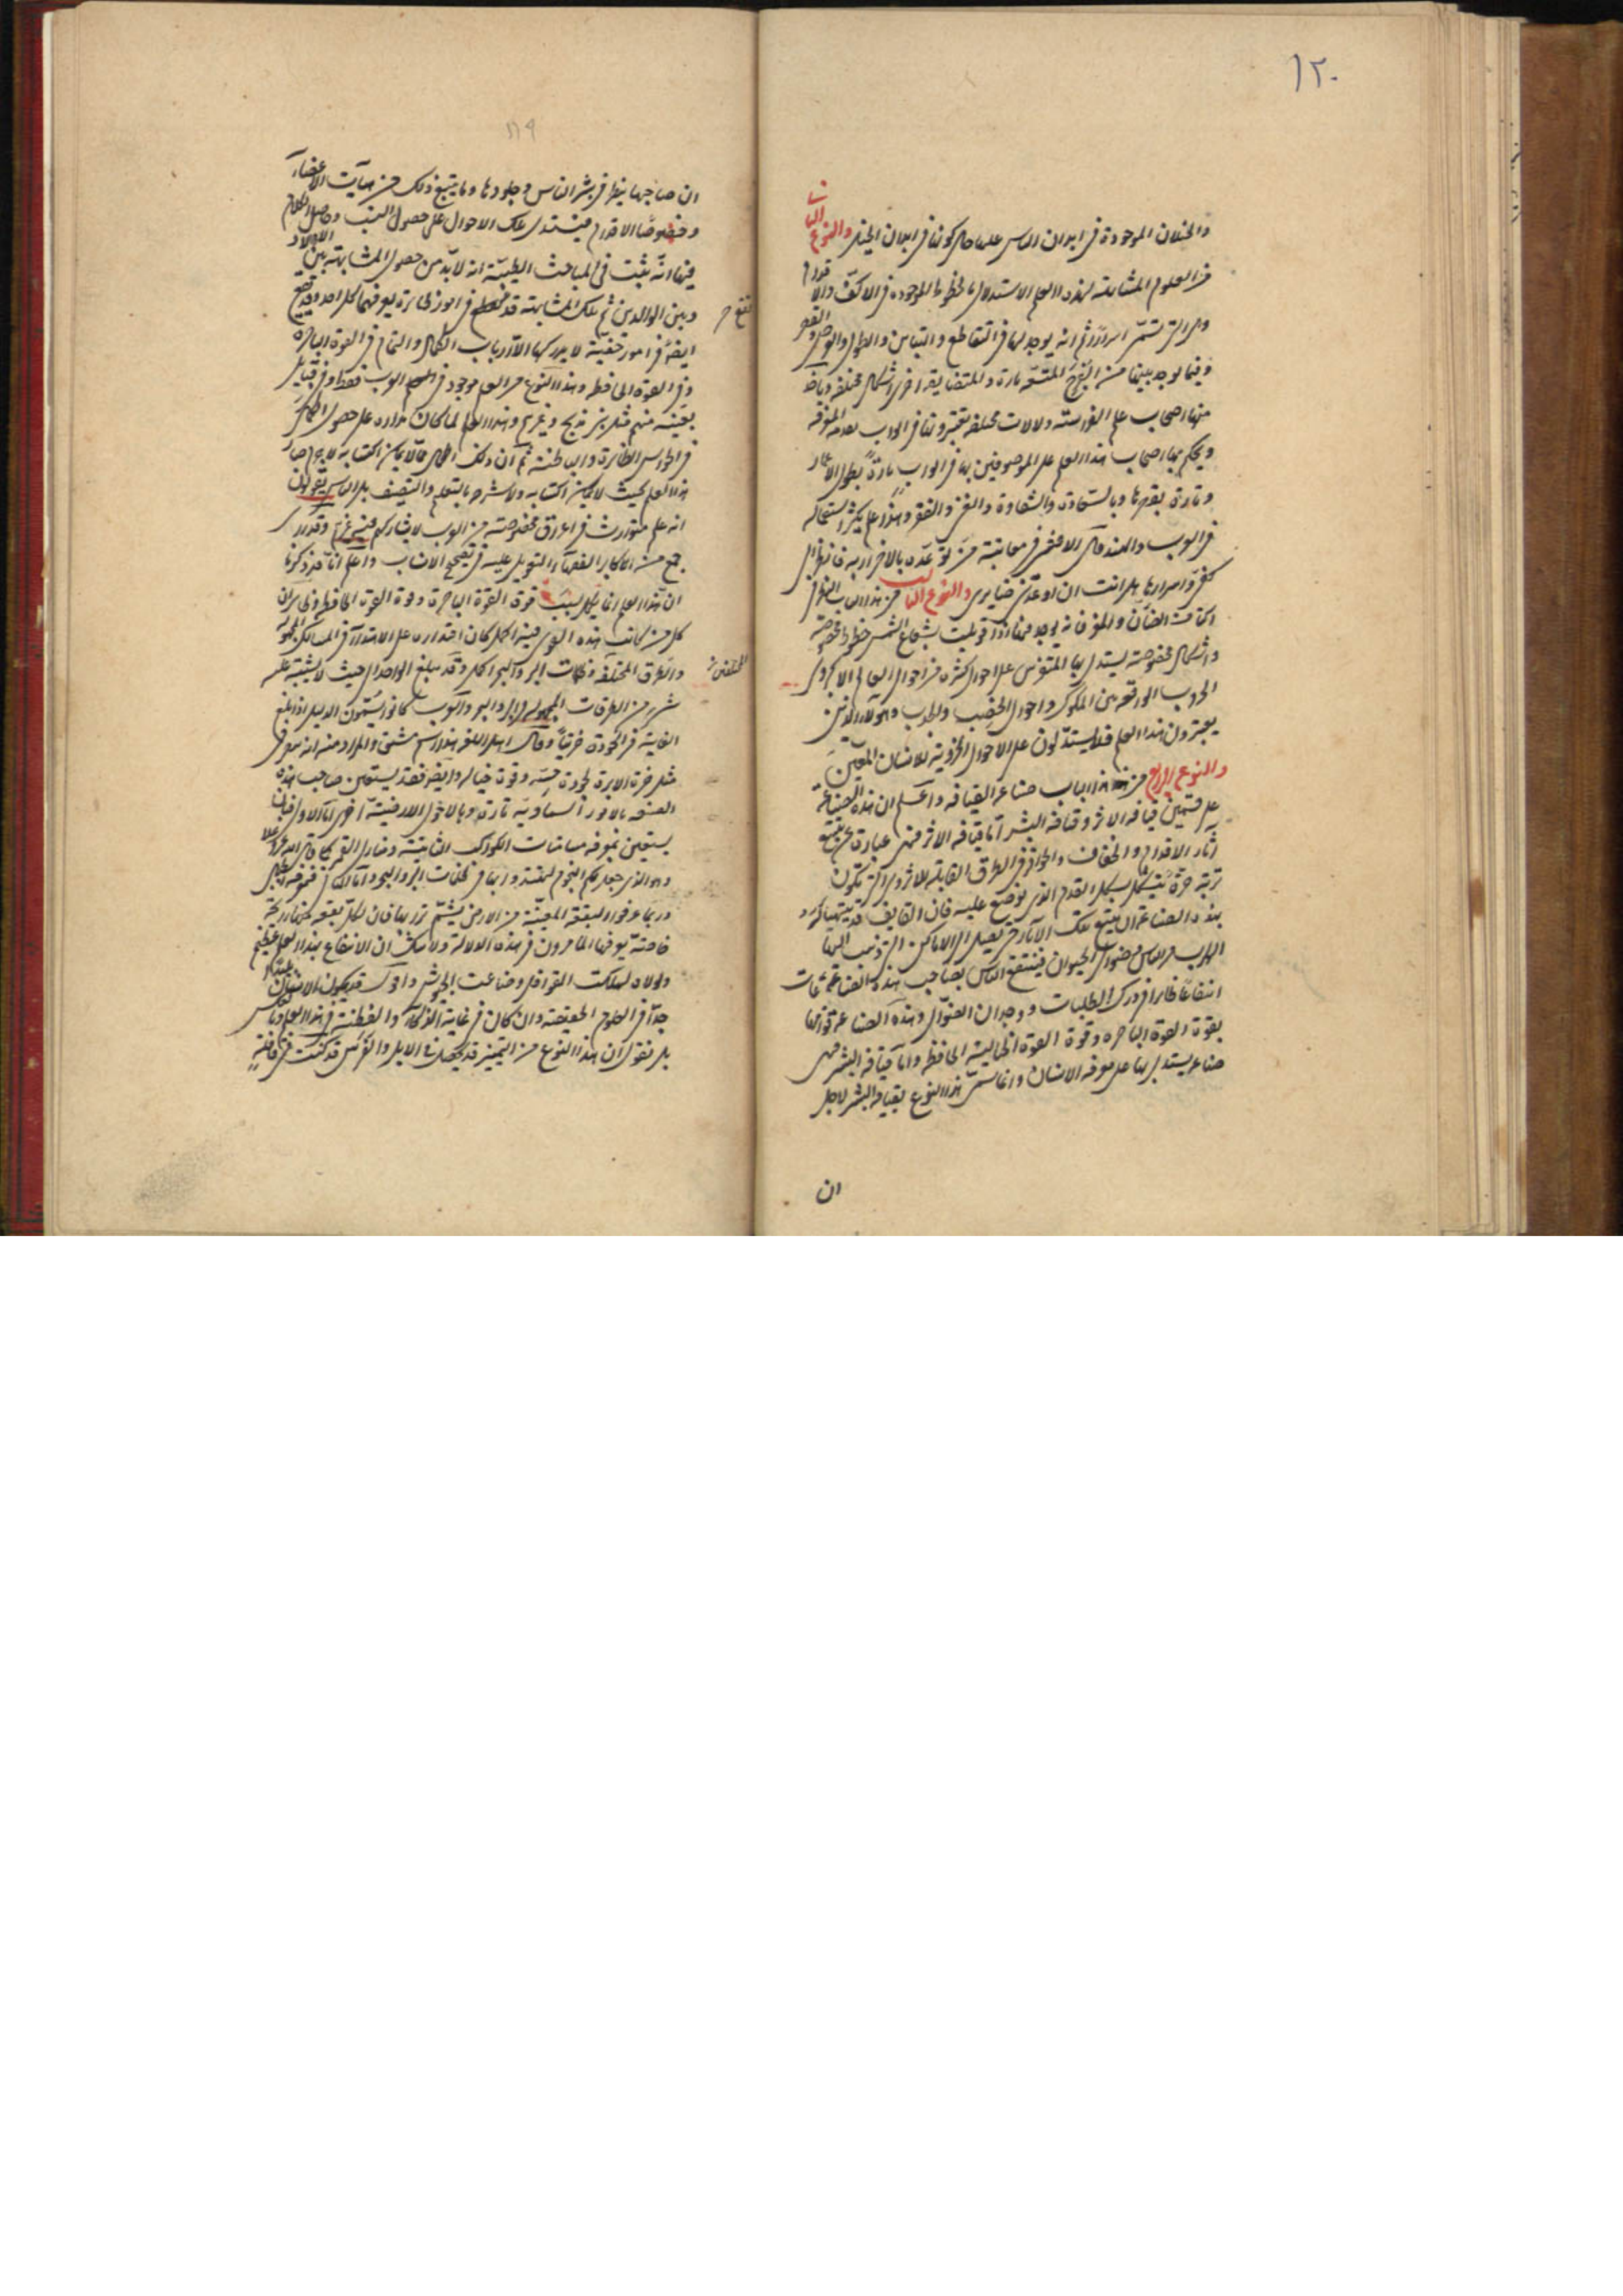 ١٢٠
والخيلان الموجودة في ابدان الناس على ما حال كونها في ابدان الخيل والنوع الثاني
من العلوم المشابهة لهذه العلم الاستدلال بالخطوط الموجودة في الاكف والاقدام
وهي التي تسمى اسرار ثم انه يوجد لها في التقاطع والتباين والطول والقصر
وفيما يوجد بينها من الفرج المتسعة تارة والمتضايقة اخرى اشكال مختلفة
منها اصحاب علم الفراسة دلالات مختلفة يعتبرونها في
ويحكم بها اصحاب هذا العلم على الموصوفين بها في الحرب تارة بطول الاعمار
وتارة بقصرها وبالسعادة والشقاوة والغنى والفقر وهذا علم يكثر استعماله
في العرب والهند قال الاعشى في معاتبة من توعده بالاضرار به فانظر الى
كف واسرارها هل انت ان اوعدتني ضايري والنوع الثالث من هذا الباب النظر في
اكتاف الضأن والمعز فانه يوجد فيها اذا قوبلت بشعاع الشمس خطوط مخصوصة
واشكال مخصوصة يستدل بها المتفرس على احوال كثيرة من احوال العالم الاكبر وهي
الحروب الواقعة بين الملوك واحوال الخصب والجدب وهولاء الذين
يعتبرون هذا العلم فقلما يستدلون على الاحوال الجزوية للانسان المعين
والنوع الرابع من هذا الباب صناعة القيافه واعلم ان هذه الصناعة
على قسمين قيافه الاثر وقيافه البشر اما قيافه الاثر فهي عبارة عن تتبع
آثار الاقدام والخفاف والحوافر في الطرق القابلة للاثر وهي التي تكون
تربة حرة تتشكل بشكل القدم الذي يوضع عليه فان القايف
بهذه الصناعة ان يتبع تلك الآثار حتى يصل الى الاماكن التي ذهب اليها
الهارب من الناس وضوال الحيوان فينتفع الناس بصاحب هذه الصناعة
انتفاعا ظاهرا في درك الطلبات ووجدان الضوال وهذه الصناعة قوامها
بقوة القوة الباصره وقوة القوة الخيالية الحافظه واما قيافه البشر فهي
صناعه يستدل بها على معرفه الانسان وانما سمي هذا النوع بقيافه البشر لاجل
ان
١١٩
ان صاحبها ينظر في بشر الناس وجلودها وما يتبع ذلك من هيآت الاعضاء
وخصوصا الاقدام فيستدل بتلك الاحوال على حصول النسب وحاصل الكلام
فيها انه ثبت في المباحث الطبية انه لا بد من حصول المشابهة بين الاولاد
وبين الوالدين ثم تلك المشابهة قد تقع في امور ظاهرة يعرفها كل احد وقد تقع
ايضا في امور خفية لا يدركها الا ارباب الكمال والتمام في القوة الباصره
وفي القوه الحافظه وهذا النوع من العلم موجود في العرب فقط وفي قبايل
معينه منهم مثل بني مدلج وغيرهم وهذا العلم لما كان مداره على حصول الكمال
في الحواس الظاهرة والباطنة ثم ان ذلك الكمال مما لا يمكن اكتسابه لا جرم صار
هذا العلم بحيث لا يمكن اكتسابه ولا شرحه بالتعليم والتصنيف بل الناس يقولون
انه علم متوارث في اعراق مخصوصة من العرب لا يشاركهم فيه غيرهم وقد راى
جمع من اكابر الفقهاء التعويل عليه في تصحيح الانساب واعلم انا قد ذكرنا
ان هذا العلم انما يكمل بسبب قوة القوة الباصرة وقوة القوة الحافظه
كل من كانت هذه القوى فيه اكمل كان اقتداره على الاهتداء في المسالك المجهولة
والطرق المختلفه وظلمات البر والبحر اكمل وقد يبلغ الواحد الى حيث لا يشتبه عليه
شيء من الطرقات المجهوله في البر والبحر والعرب كانوا يسمون الدليل اذا بلغ
الغاية في الجودة خريتا وقال اهل اللغه هذا اسم مشتق والمراد منه انه يعرف
مثل خرت الابرة لجودة حسه وقوة خياله وايضا فقد يستعين صاحب هذه
الصنعه بالامور السماوية تارة وبالاحوال الارضية اخرى اما الاول فبان
يستعين بمعرفه مسامتات الكواكب الثابتة ومنازل القمر كما قال الله عز وعلا
وهو الذي جعل لكم النجوم لتهتدوا بها في ظلمات البر والبحر واما الثاني
وربما عرفوا البقعة المعينة من الارض بشم ترابها فان لكل بقعه رايحة
خاصة يعرفها الماهرون في هذه الدلالة ولا شك ان الانتفاع بهذا العلم عظيم
ولولاه لهلكت القوافل وضاعت الجيوش وقد يكون الانسان
جدا في العلوم الحقيقية وان كان في غاية الذكاء والفطنة في هذا العلم
بل نقول ان هذا النوع من التمييز قد يحصل في الابل والفرس قد كنت في قافلة